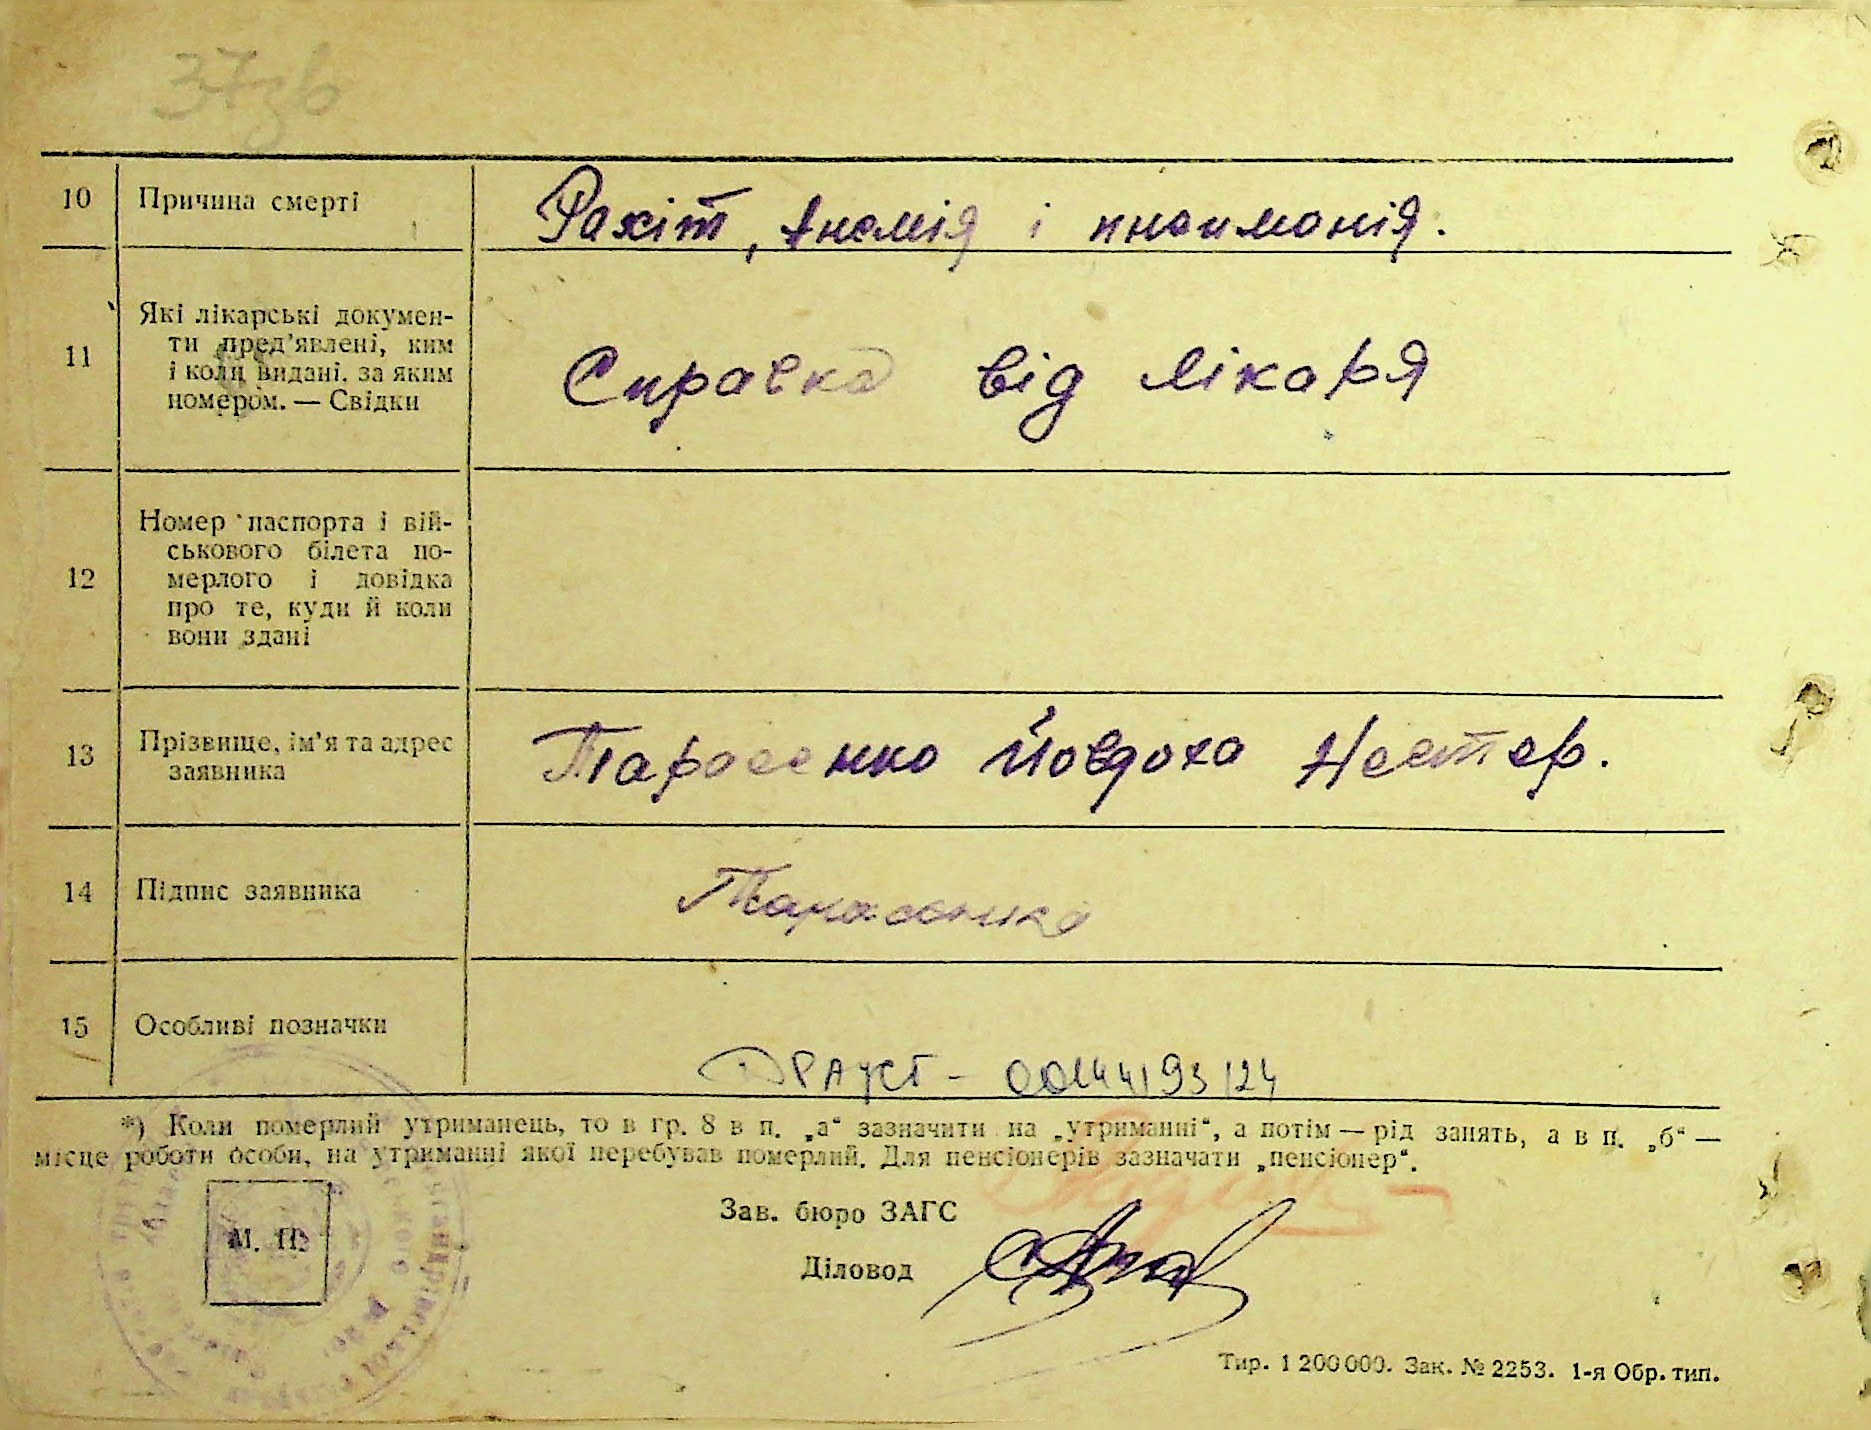 37зв
10 Причина смерті Рахіт, Анемія і пневмонія.
11 Які лікарські докумен-
ти пред'явлені, ким
і коли видані, за яким
номером. — Свідки
Справка від лікаря
12 Номер паспорта і вій-
ськового білета по-
мерлого і довідка
про те, куди й коли
вони здані
13 Прізвище, ім'я та адрес
заявника
Тарасенко Йовдоха Нестер.
14 Підпис заявника Тарасенко
15 Особливі позначки
ДРАЦСГ - 00244193124
*) Коли померлий утриманець, то в гр. 8 в п. „а“ зазначити на „утриманні“, а потім — рід занять, а в п. „б“ —
місце роботи особи, на утриманні якої перебував померлий. Для пенсіонерів зазначати „пенсіонер“.
Зав. бюро ЗАГС
М. П.
Діловод
Тир. 1 200 000. Зак. № 2253. 1-я Обр. тип.